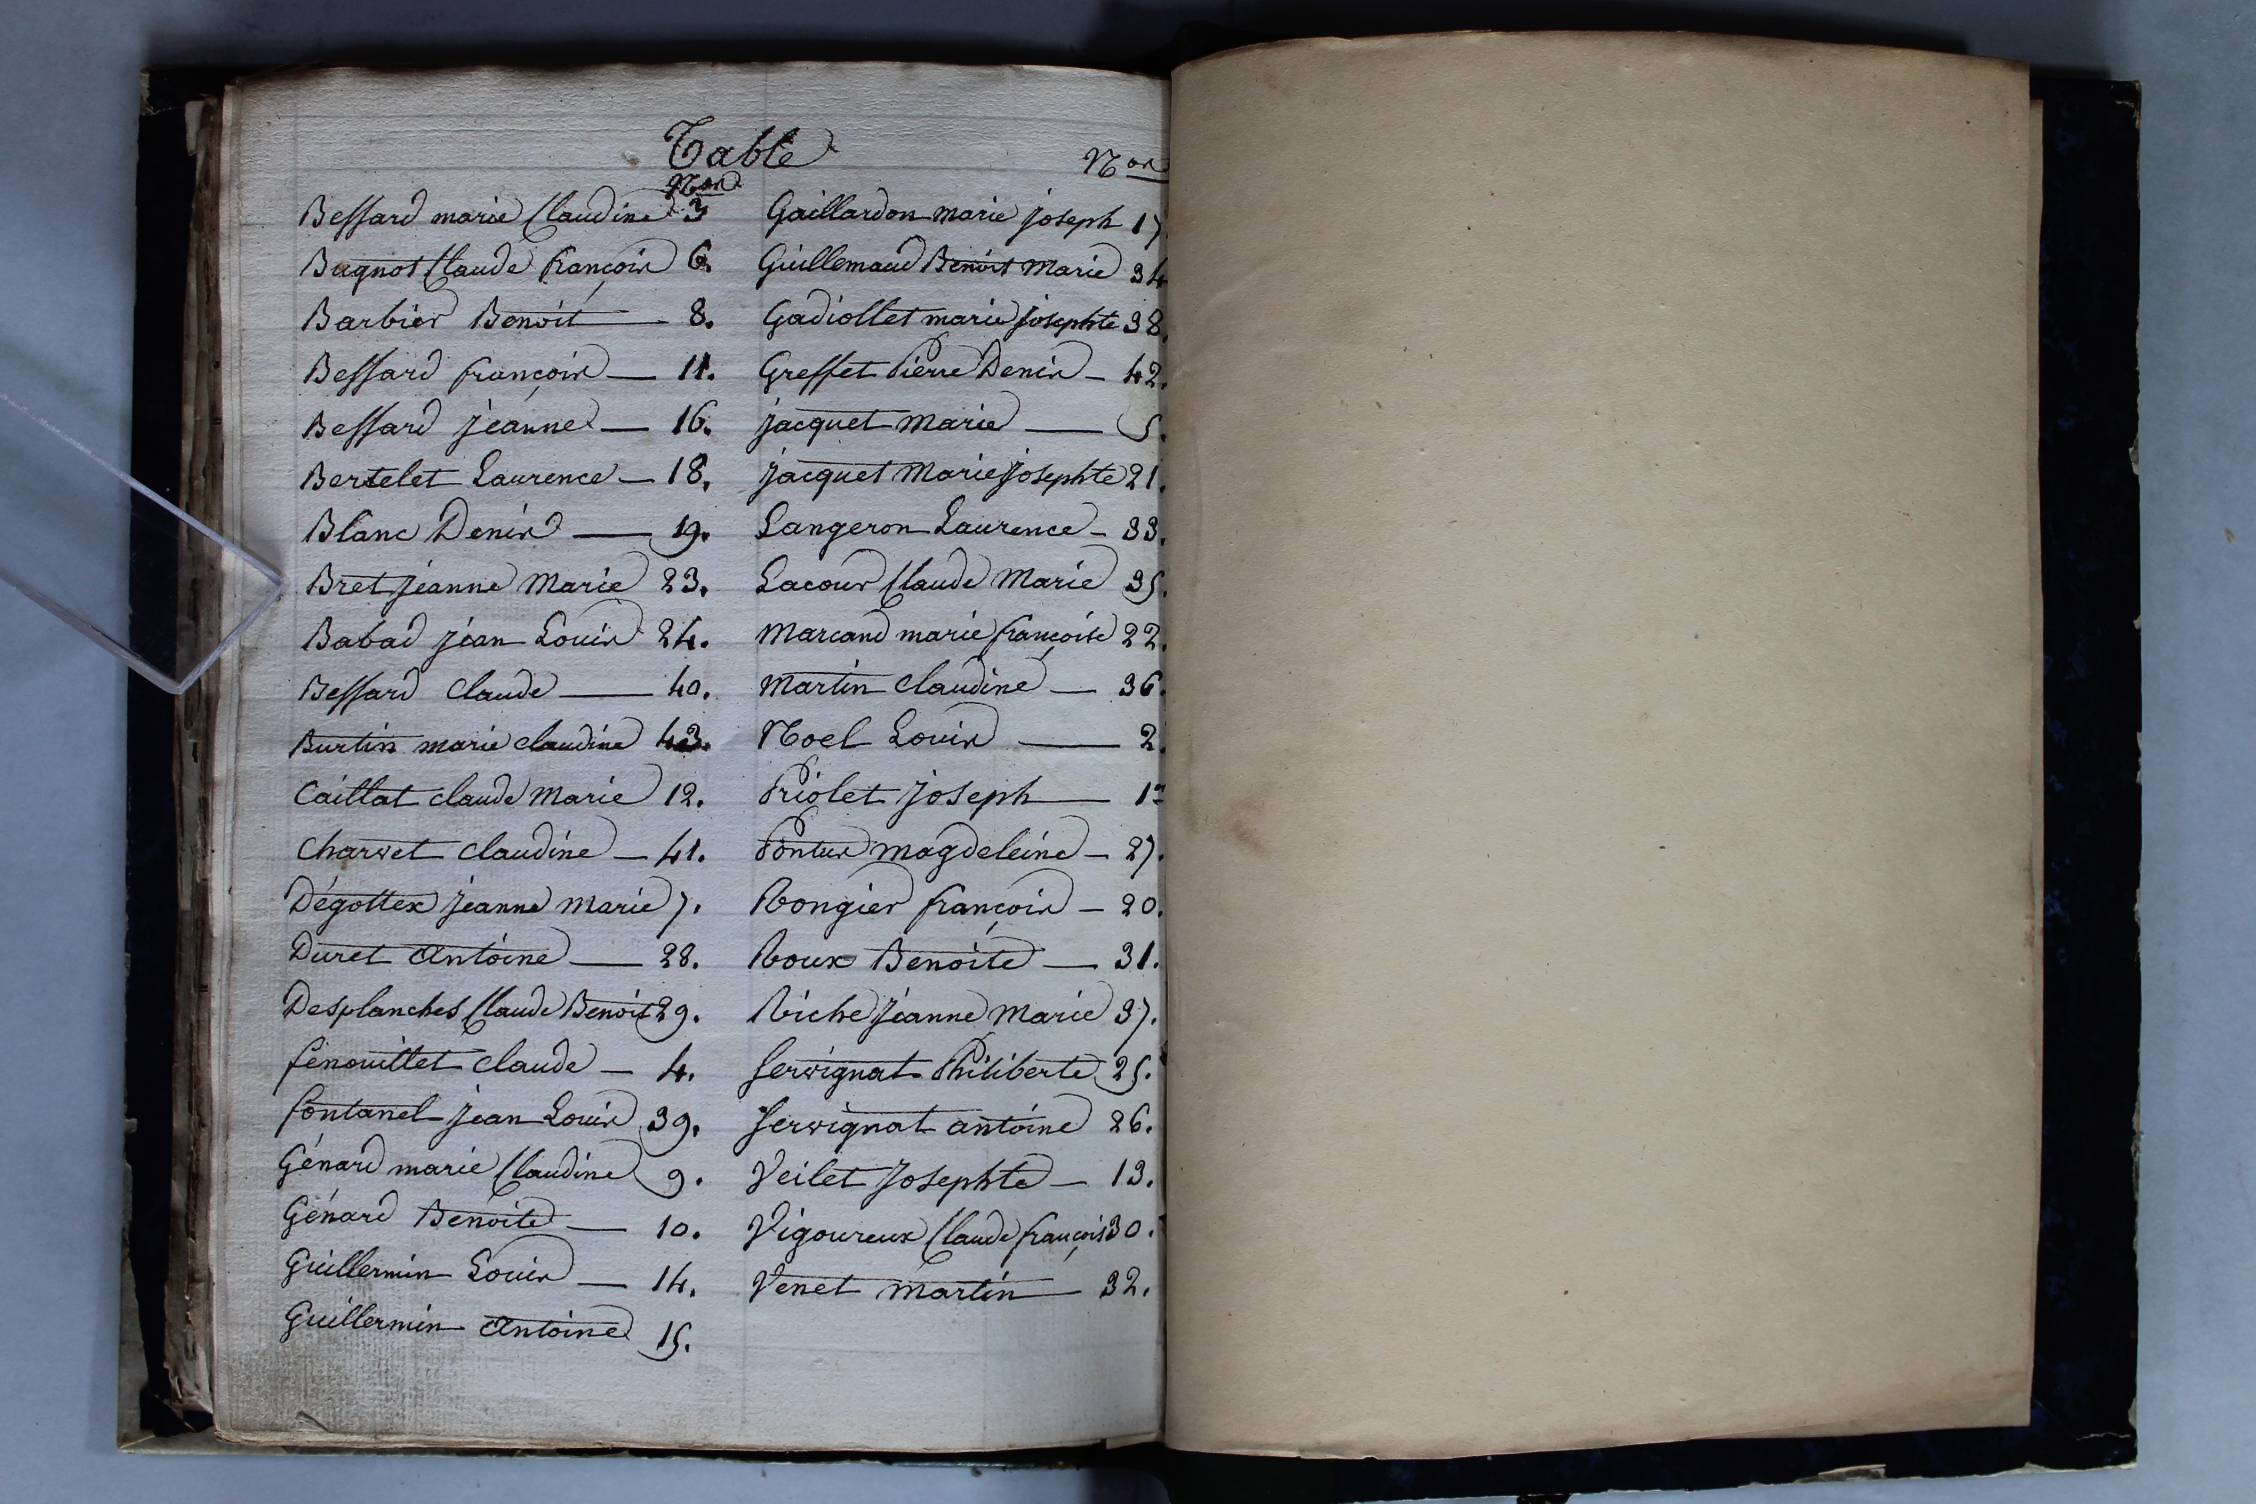 Table
Nos
Bessard marie Claudine 3
Bagnot Claude françois 6.
Barbier Benoit — 8.
Bessard françois — 11.
Bessard jeanne — 16.
Bertelet Laurence — 18.
Blanc Denis — 19.
Bret jeanne Marie 23.
Babad jean Louis 24.
Bessard Claude — 40.
Burtin marie claudine 43.
Caillat claude Marie 12.
Charvet claudine — 41.
Dégottex jeanne marie 7.
Duret Antoine — 28.
Desplanches Claude Benoit 29.
fenouillet claude — 4.
fontanel jean Louis 39.
Génard marie Claudine 9.
Génard Benoite — 10.
Guillermin Louis — 14.
Guillermin Antoine 15.
Nos
Gaillardon marie joseph 17.
Guillemaud Benoit Marie 34
Gadiollet marie josephte 38.
Greffet Pierre Denis — 42.
jacquet Marie — 5.
jacquet Marie josephte 21.
Langeron Laurence — 33.
Lacour Claude Marie 35.
Marcand marie françoise 22.
Martin claudine — 36.
Noel Louis — 2.
Priolet joseph — 1er
Pontus magdeleine — 27.
Rongier françois — 20.
Roux Benoite — 31.
Riche jeanne Marie 37.
Servignat Philiberte 25.
Servignat antoine 26.
Veilet Josephte — 13.
Vigoureux Claude françois 30.
Venet martin — 32.